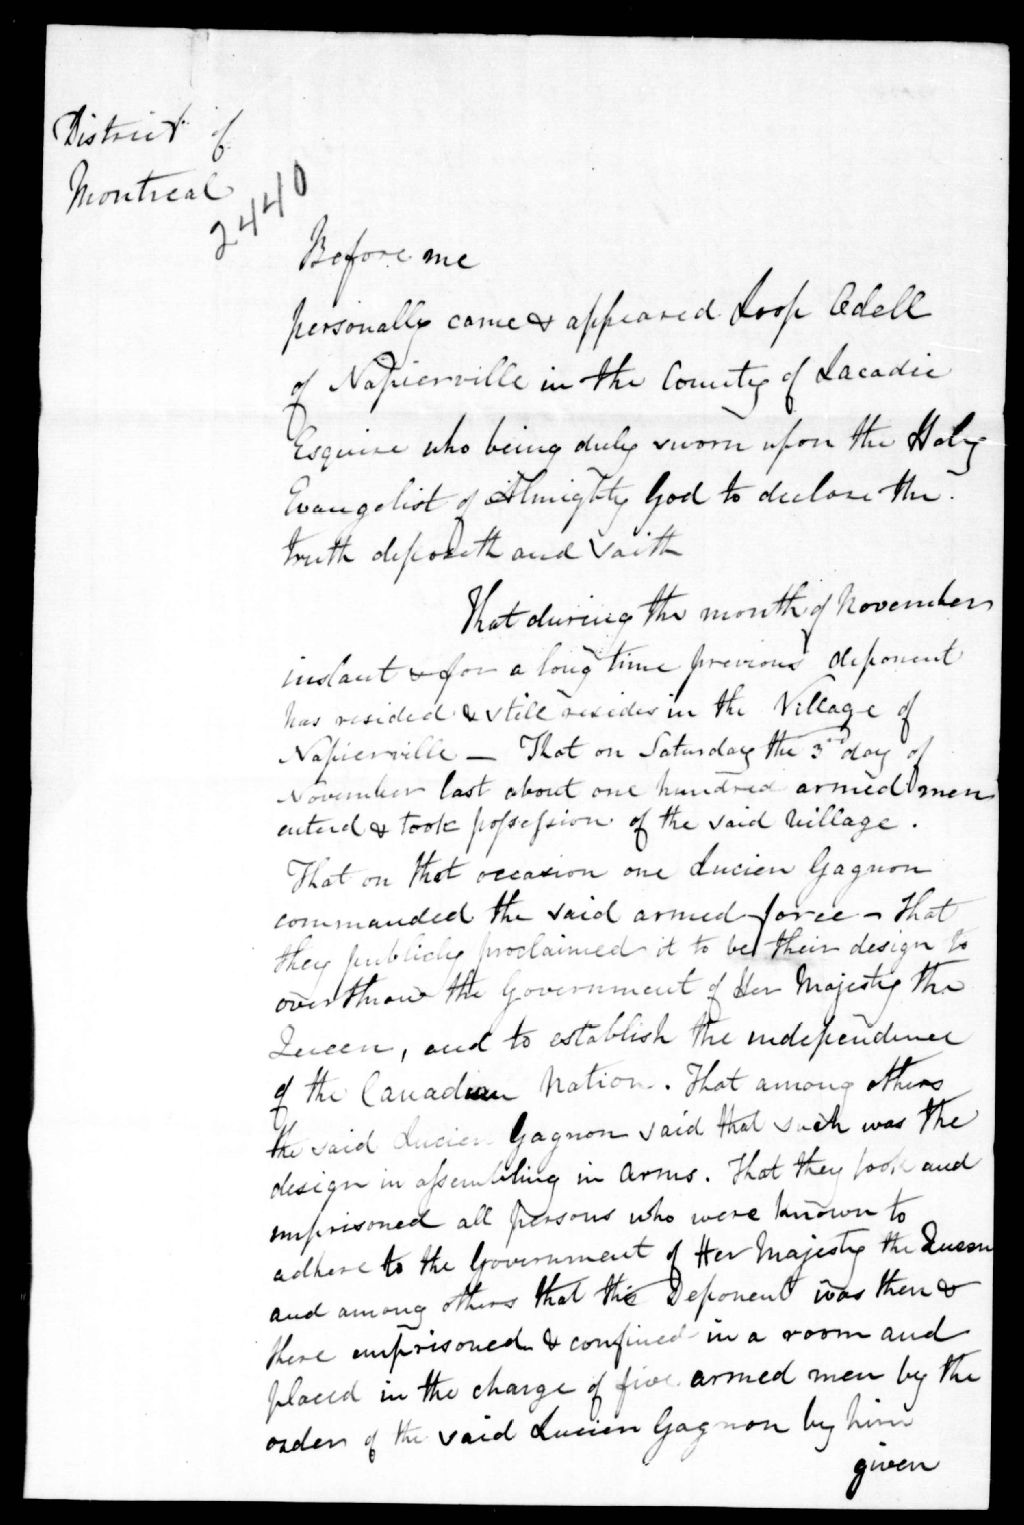 District of
Montreal
2440
Before me
personally came & appeared Loop Odell
of Napierville in the County of Lacadie
Esquire who being duly sworn upon the Holy
Evangelist of Almighty God to declare the
truth deposeth and saith
That during the month of November
instant & for a long time previous deponent
has resided & still resides in the Village of
Napierville — That on Saturday the 3rd day of
November last about one hundred armed men
enterd & took possession of the said Village.
That on that occasion one Lucien Gagnon
commanded the said armed force – That
they publicly proclaimed it to be their design to
overthrow the Government of Her Majesty the
Queen, and to establish the independence
of the Canadian Nation. That among others
the said Lucien Gagnon said that such was the
design in assembling in Arms. That they took and
imprisoned all persons who were known to
adhere to the Government of Her Majesty the Queen
and among others that the Deponent was then &
there imprisoned & confined in a room and
placed in the charge of five armed men by the
order of the said Lucien Gagnon by him
given